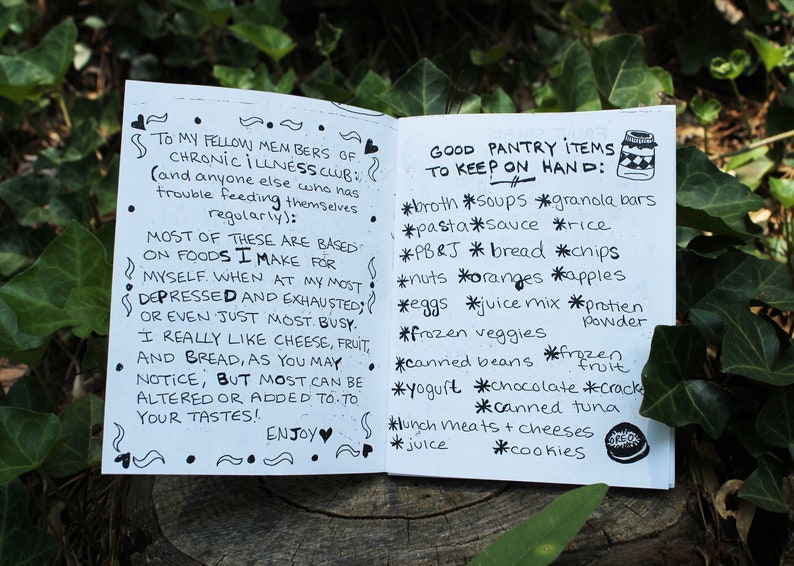 TO MY FELLOW MEMBERS OF
CHRONIC ILLNESS CLUB:
(and anyone else who has
trouble feeding themselves
regularly):
MOST OF THESE ARE BASED
ON FOODS I MAKE FOR
MYSELF WHEN AT MY MOST
DEPRESSED AND EXHAUSTED;
OR EVEN JUST MOST BUSY.
I REALLY LIKE CHEESE, FRUIT,
AND BREAD, AS YOU MAY
NOTICE, BUT MOST CAN BE
ALTERED OR ADDED TO TO
YOUR TASTES!
ENJOY♥
GOOD PANTRY ITEMS
TO KEEP ON HAND:
*broth *soups *granola bars
*pasta *sauce *rice
*PB&J *bread *chips
*nuts *oranges *apples
*eggs *juice mix *protien
powder
*frozen veggies
*canned beans *frozen
fruit
*yogurt *chocolate *crack
*canned tuna
*lunch meats + cheeses
*juice *cookies
OREO